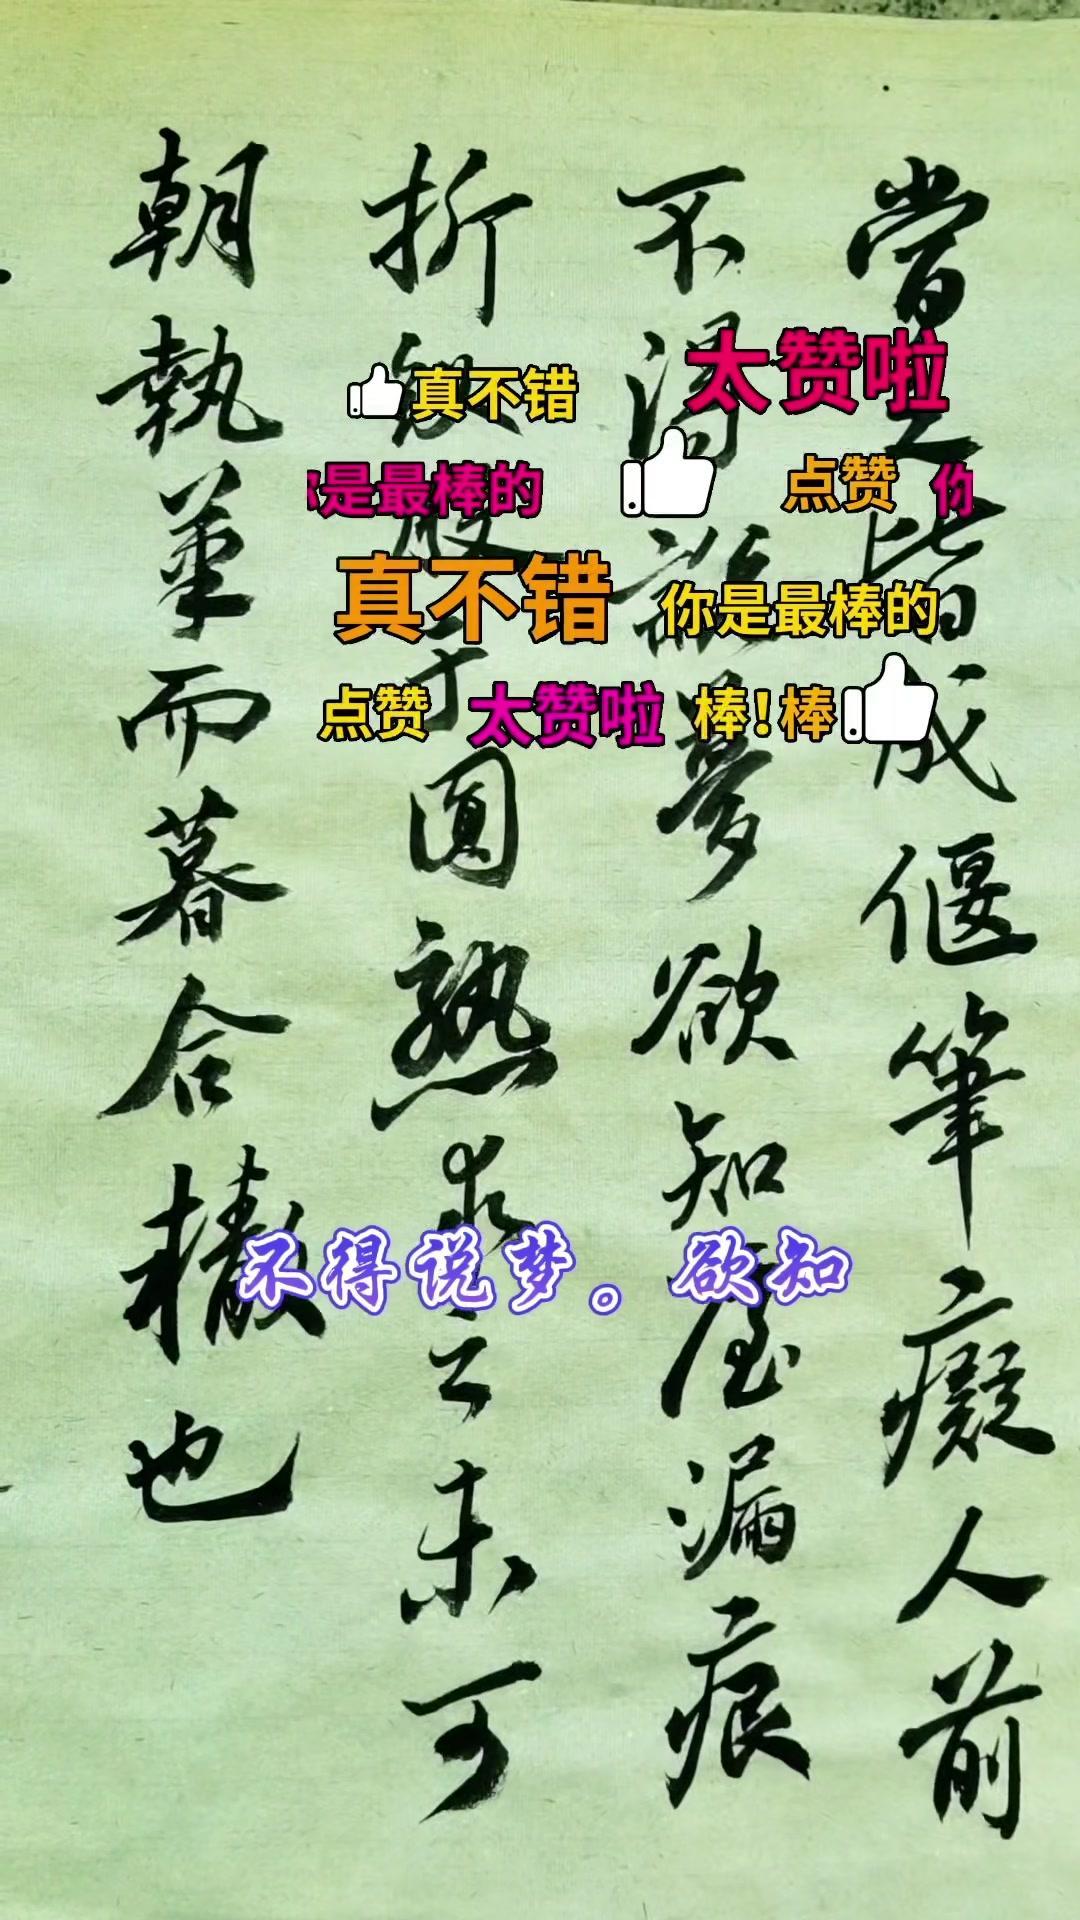 當之皆成偃筆癡人前
不得說夢欲知屋漏痕
折釵股于圓熟求之未可
朝執筆而暮合轍也
真不错
太赞啦
你是最棒的
点赞
你
真不错
你是最棒的
点赞
太赞啦
棒!棒
不得说梦。欲知